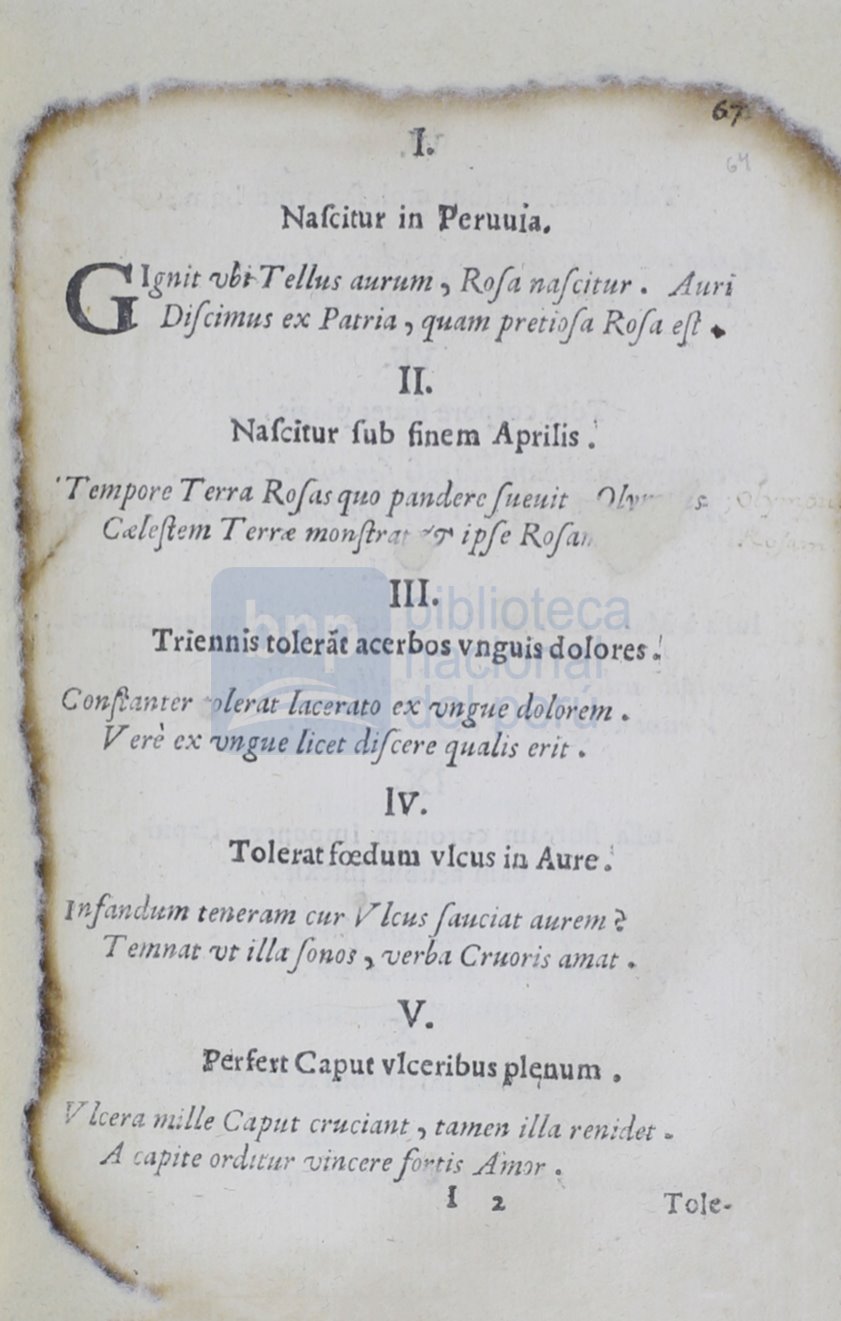 67
64
I.
Naſcitur in Peruuia.
GIgnit vbi Tellus aurum, Roſa naſcitur. Auri
Diſcimus ex Patria, quam pretioſa Roſa eſt.
II.
Naſcitur ſub finem Aprilis.
Tempore Terra Roſas quo pandere ſueuit
Cæleſtem Terræ monſtrat & ipſe Roſam
III.
Triennis tolerãt acerbos vnguis dolores.
Conſtanter tolerat lacerato ex vngue dolorem.
Verè ex vngue licet diſcere qualis erit.
IV.
Tolerat fœdum vlcus in Aure.
Infandum teneram cur Vlcus ſauciat aurem?
Temnat vt illa ſonos, verba Cruoris amat.
V.
Perfert Caput vlceribus plenum.
Vlcera mille Caput cruciant, tamen illa renidet.
A capite orditur vincere fortis Amor.
I 2
Tole-
bnp biblioteca
nacional
del perú